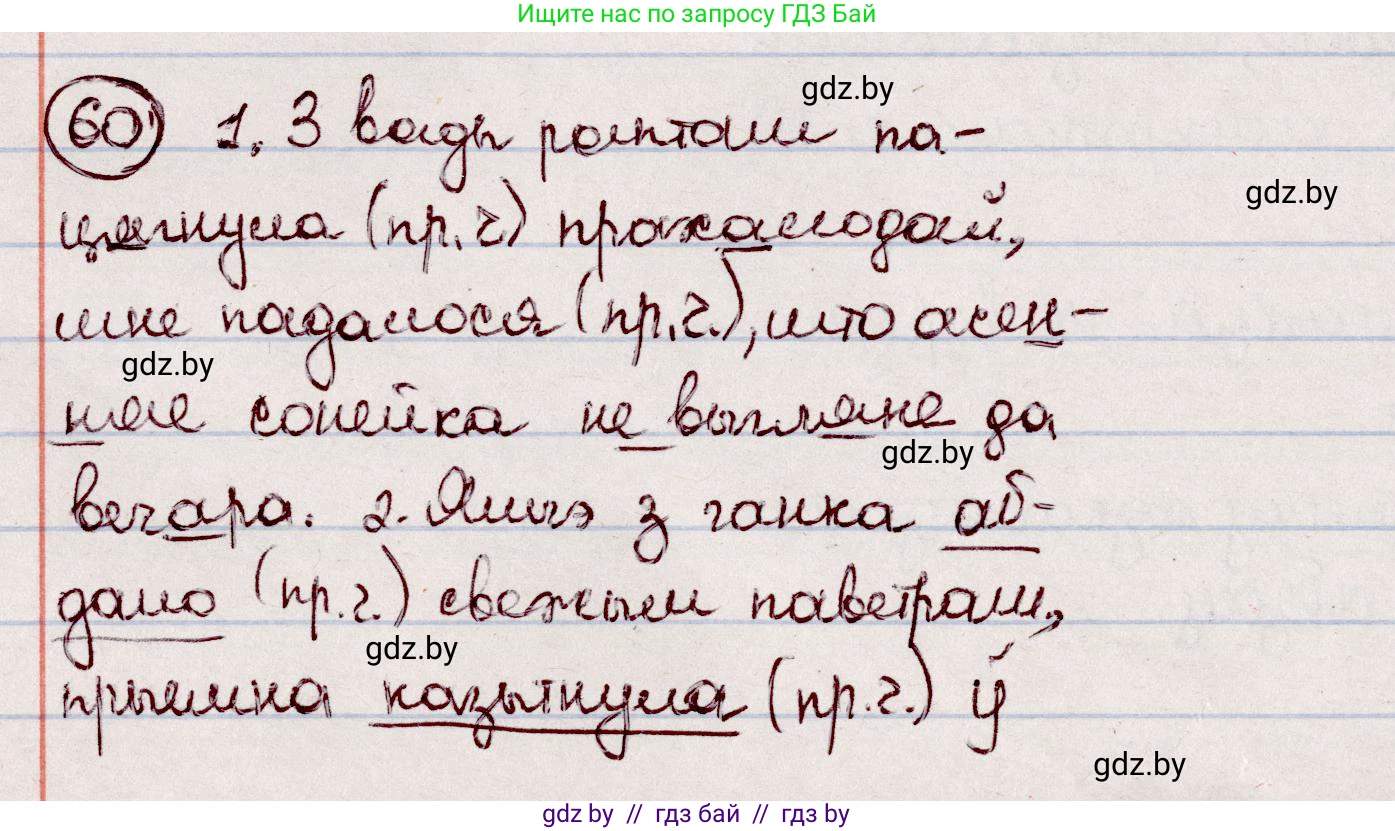 Ищите нас по запросу ГДЗ Бай
gdz.by
60 1. З вады раптам па-
gdz.by
цягнула (пр.ч.) прахалодай,
мне падалося (пр.ч.), што асен-
gdz.by
няе сонейка не выгляне да
gdz.by
вечара. 2. Яшчэ з ганка аб-
дало (пр.ч.) свежым паветрам,
gdz.by
прыемна казытнула (пр.ч.) ў
gdz.by
gdz by // гдз бай // гдз by